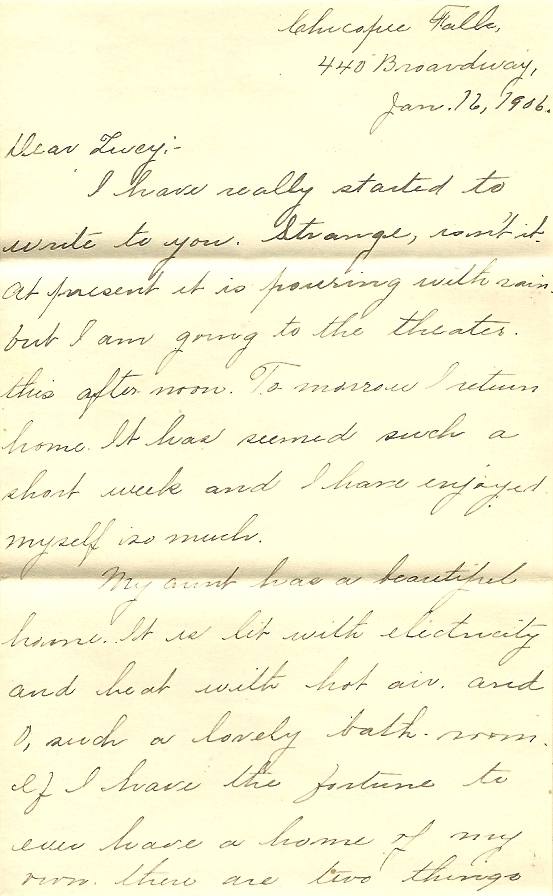 Chicopee Falls,
440 Broardway,
Jan. 12, 1906.
Dear Lucy:-
I have really started to
write to you. Strange, isn't it.
At present it is pouring with rain.
but I am going to the theater.
this after noon. To morrow I return
home. It has seemed such a
short week and I have enjoyed
myself so much.
My aunt has a beautiful
home. It is lit with electricity
and heat with hot air. and
O, such a lovely bath-room.
If I have the fortune to
ever have a home of my
own. there are two things